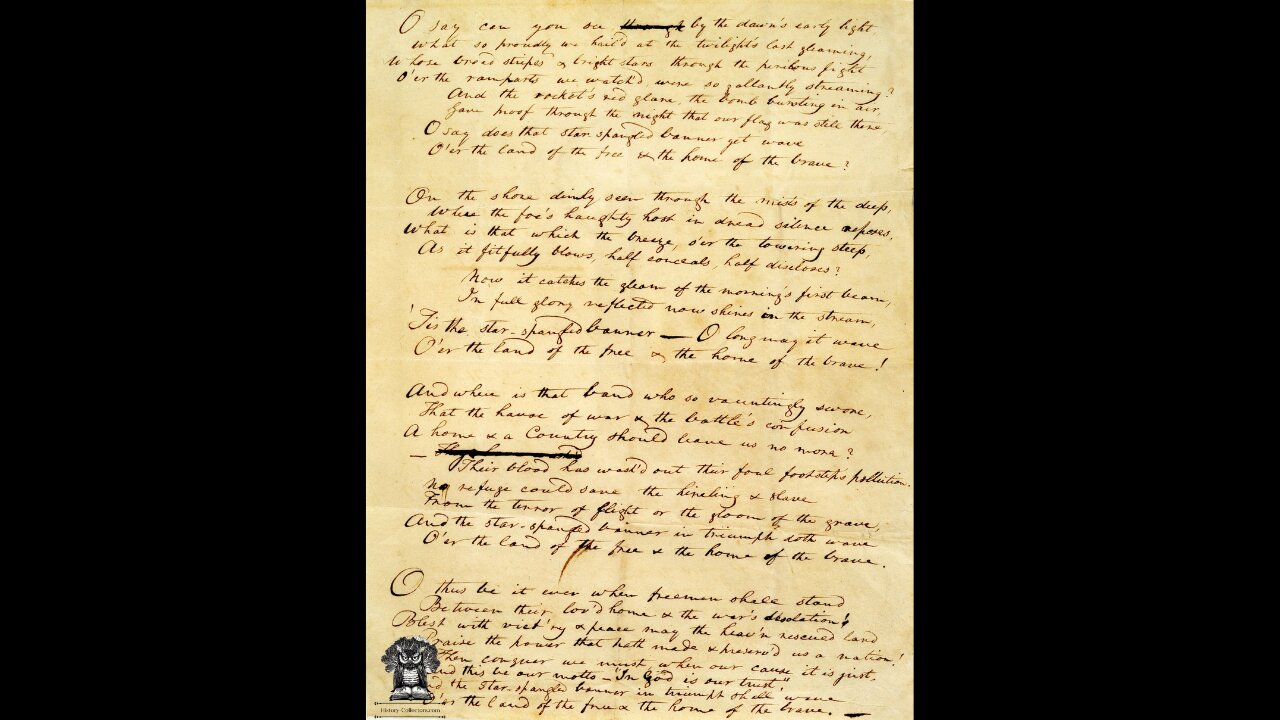 O say can you see ~~through~~ by the dawn's early light,
What so proudly we hail'd at the twilight's last gleaming,
Whose broad stripes & bright stars through the perilous fight
O'er the ramparts we watch'd, were so gallantly streaming?
And the rocket's red glare, the bomb bursting in air,
Gave proof through the night that our flag was still there,
O say does that star-spangled banner yet wave
O'er the land of the free & the home of the brave?
On the shore dimly seen through the mists of the deep,
Where the foe's haughty host in dread silence reposes,
What is that which the breeze, o'er the towering steep,
As it fitfully blows, half conceals, half discloses?
Now it catches the gleam of the morning's first beam,
In full glory reflected now shines in the stream,
'Tis the star-spangled banner — O long may it wave
O'er the land of the free & the home of the brave!
And where is that band who so vauntingly swore,
That the havoc of war & the battle's confusion
A home & a Country should leave us no more?
—
Their blood has wash'd out their foul footstep's pollution.
No refuge could save the hireling & slave
From the terror of flight or the gloom of the grave,
And the star-spangled banner in triumph doth wave
O'er the land of the free & the home of the brave.
O thus be it ever when freemen shall stand
Between their lov'd home & the war's desolation!
Blest with vict'ry & peace may the heav'n rescued land
Praise the power that hath made & preserv'd us a nation!
Then conquer we must, when our cause it is just,
And this be our motto — "In God is our trust"
And the star-spangled banner in triumph shall wave
O'er the land of the free & the home of the brave. —
History-Collections.com